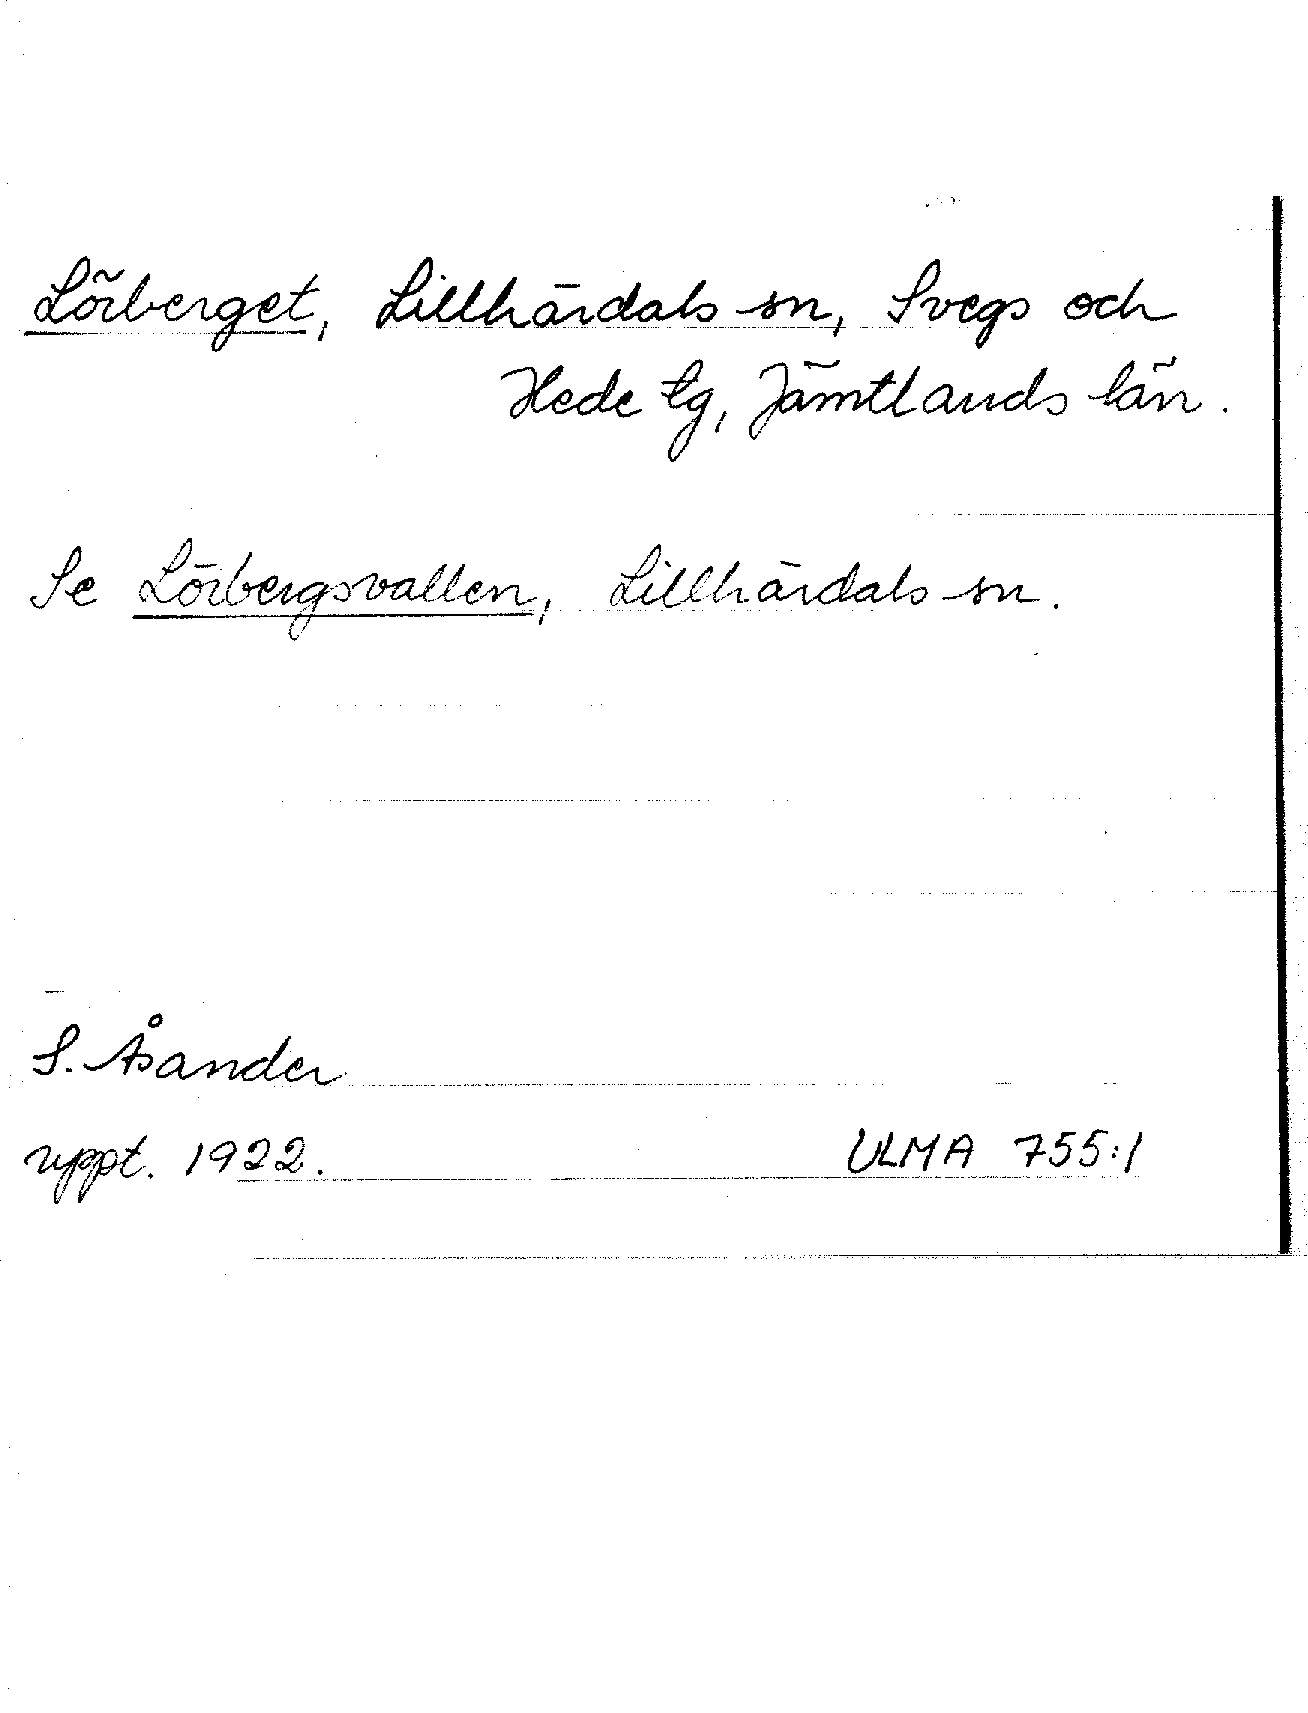 Lörberget, Lillhärdals sn, Svegs och
Hede tg, Jämtlands län.
Se Lörbergsvallen, Lillhärdals sn.
S. Åsander
uppt. 1922. ULMA 755:1